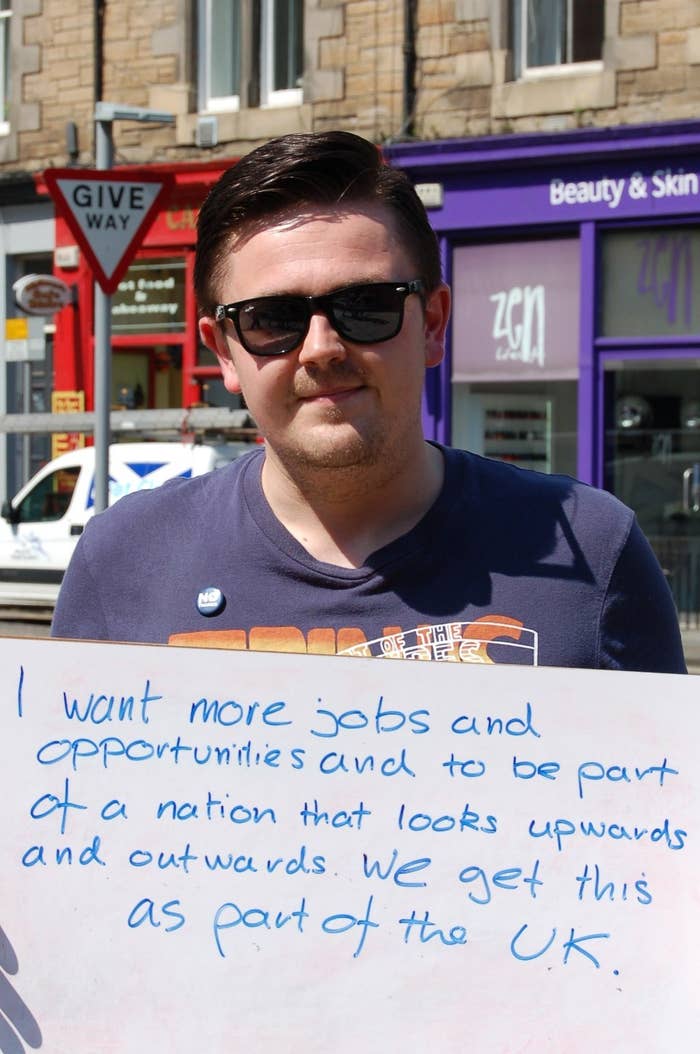 GIVE
WAY
Beauty & Skin
zen
zen
NO
OF THE
I want more jobs and
opportunities and to be part
of a nation that looks upwards
and outwards. We get this
as part of the UK.